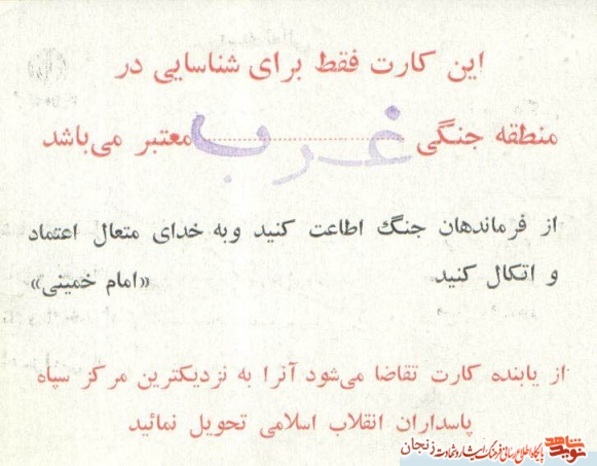 این کارت فقط برای شناسایی در
منطقه جنگی غرب معتبر می‌باشد
از فرماندهان جنگ اطاعت کنید و به خدای متعال اعتماد
و اتکال کنید «امام خمینی»
از یابنده کارت تقاضا می‌شود آنرا به نزدیکترین مرکز سپاه
پاسداران انقلاب اسلامی تحویل نمائید
نوید شاهد پایگاه اطلاع رسانی فرهنگ ایثار و شهادت زنجان